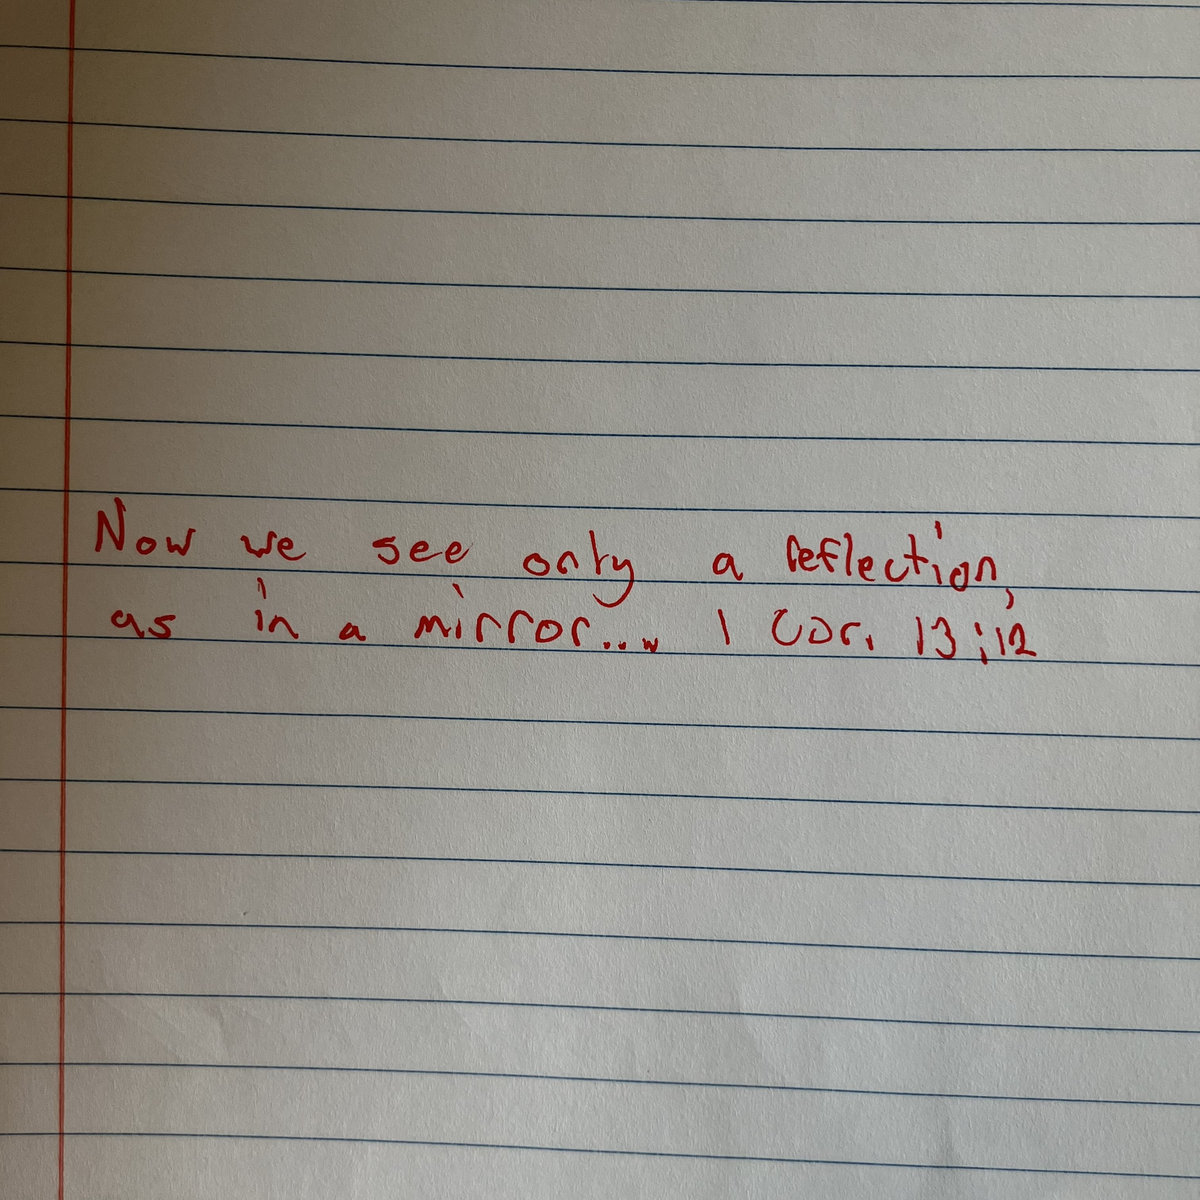 Now we see only a reflection,
as in a mirror... 1 Cor. 13:12